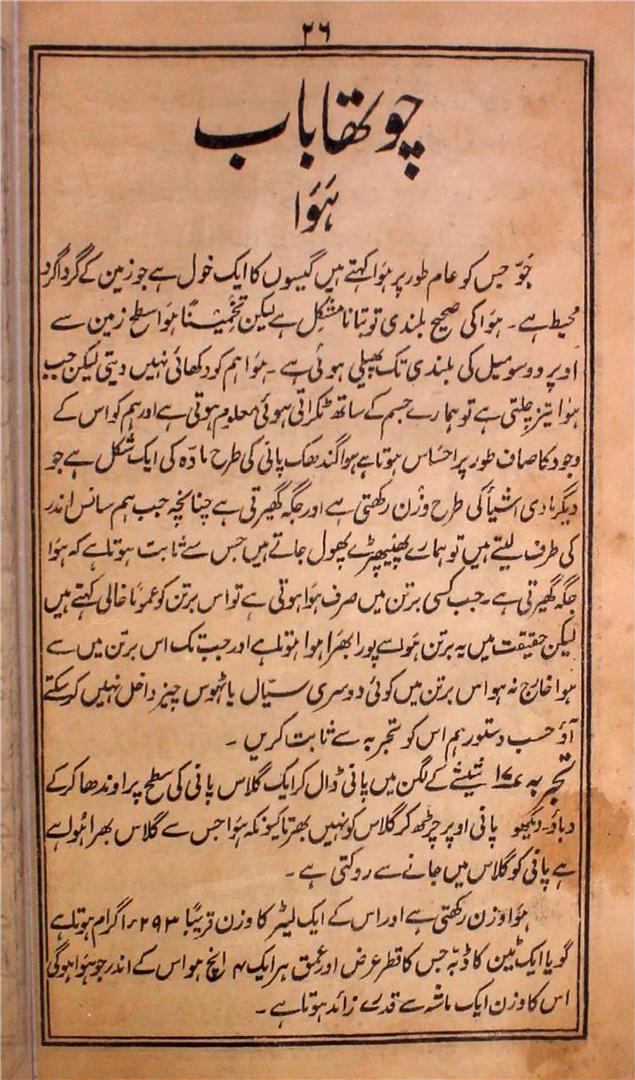 ۳۶
چوتھا باب
ہَوَا
جَوّ جس کو عام طور پر ہوا کہتے ہیں گیسوں کا ایک خول ہے جو زمین کے گرداگرد
محیط ہے۔ ہوا کی صحیح بلندی تو بتانا مشکل ہے لیکن تخمینًا ہوا سطح زمین سے
اوپر دو سو میل کی بلندی تک پھیلی ہوئی ہے۔ ہوا ہم کو دکھائی نہیں دیتی لیکن جب
ہوا تیز چلتی ہے تو ہمارے جسم کے ساتھ ٹکراتی ہوئی معلوم ہوتی ہے اور ہم کو اس کے
وجود کا صاف طور پر احساس ہوتا ہے ہوا گندھک پانی کی طرح مادّہ کی ایک شکل ہے جو
دیگر مادی اشیأ کی طرح وزن رکھتی ہے اور جگہ گھیرتی ہے چنانچہ جب ہم سانس اندر
کی طرف لیتے ہیں تو ہمارے پھیپھڑے پھول جاتے ہیں جس سے ثابت ہوتا ہے کہ ہوا
جگہ گھیرتی ہے۔ جب کسی برتن میں صرف ہوا ہوتی ہے تو اس برتن کو عمومًا خالی کہتے ہیں
لیکن حقیقت میں یہ برتن ہوا سے پورا بھرا ہوا ہوتا ہے اور جب تک اس برتن میں سے
ہوا خارج نہ ہو اس برتن میں کوئی دوسری سیّال یا ٹہوس چیز داخل نہیں کرسکتے
آؤ حسب دستور ہم اس کو تجربہ سے ثابت کریں۔
تجربہ ۱۷ شیشے کے لگن میں پانی ڈال کر ایک گلاس پانی کی سطح پر اوندھا کرکے
دباؤ۔ دیکھو پانی اوپر چڑھ کر گلاس کو نہیں بھرتا کیونکہ ہوا جس سے گلاس بھرا ہوا ہے
ہے پانی کو گلاس میں جانے سے روکتی ہے۔
ہوا وزن رکھتی ہے اور اس کے ایک لیٹر کا وزن قریبًا ۱٫۲۹۳ گرام ہوتا ہے
گویا ایک ٹین کا ڈبّہ جس کا قطر عرض اور عمق ہر ایک ۴ انچ ہو اس کے اندر جو ہوا ہوگی
اس کا وزن ایک ماشہ سے قدرے زائد ہوتا ہے۔